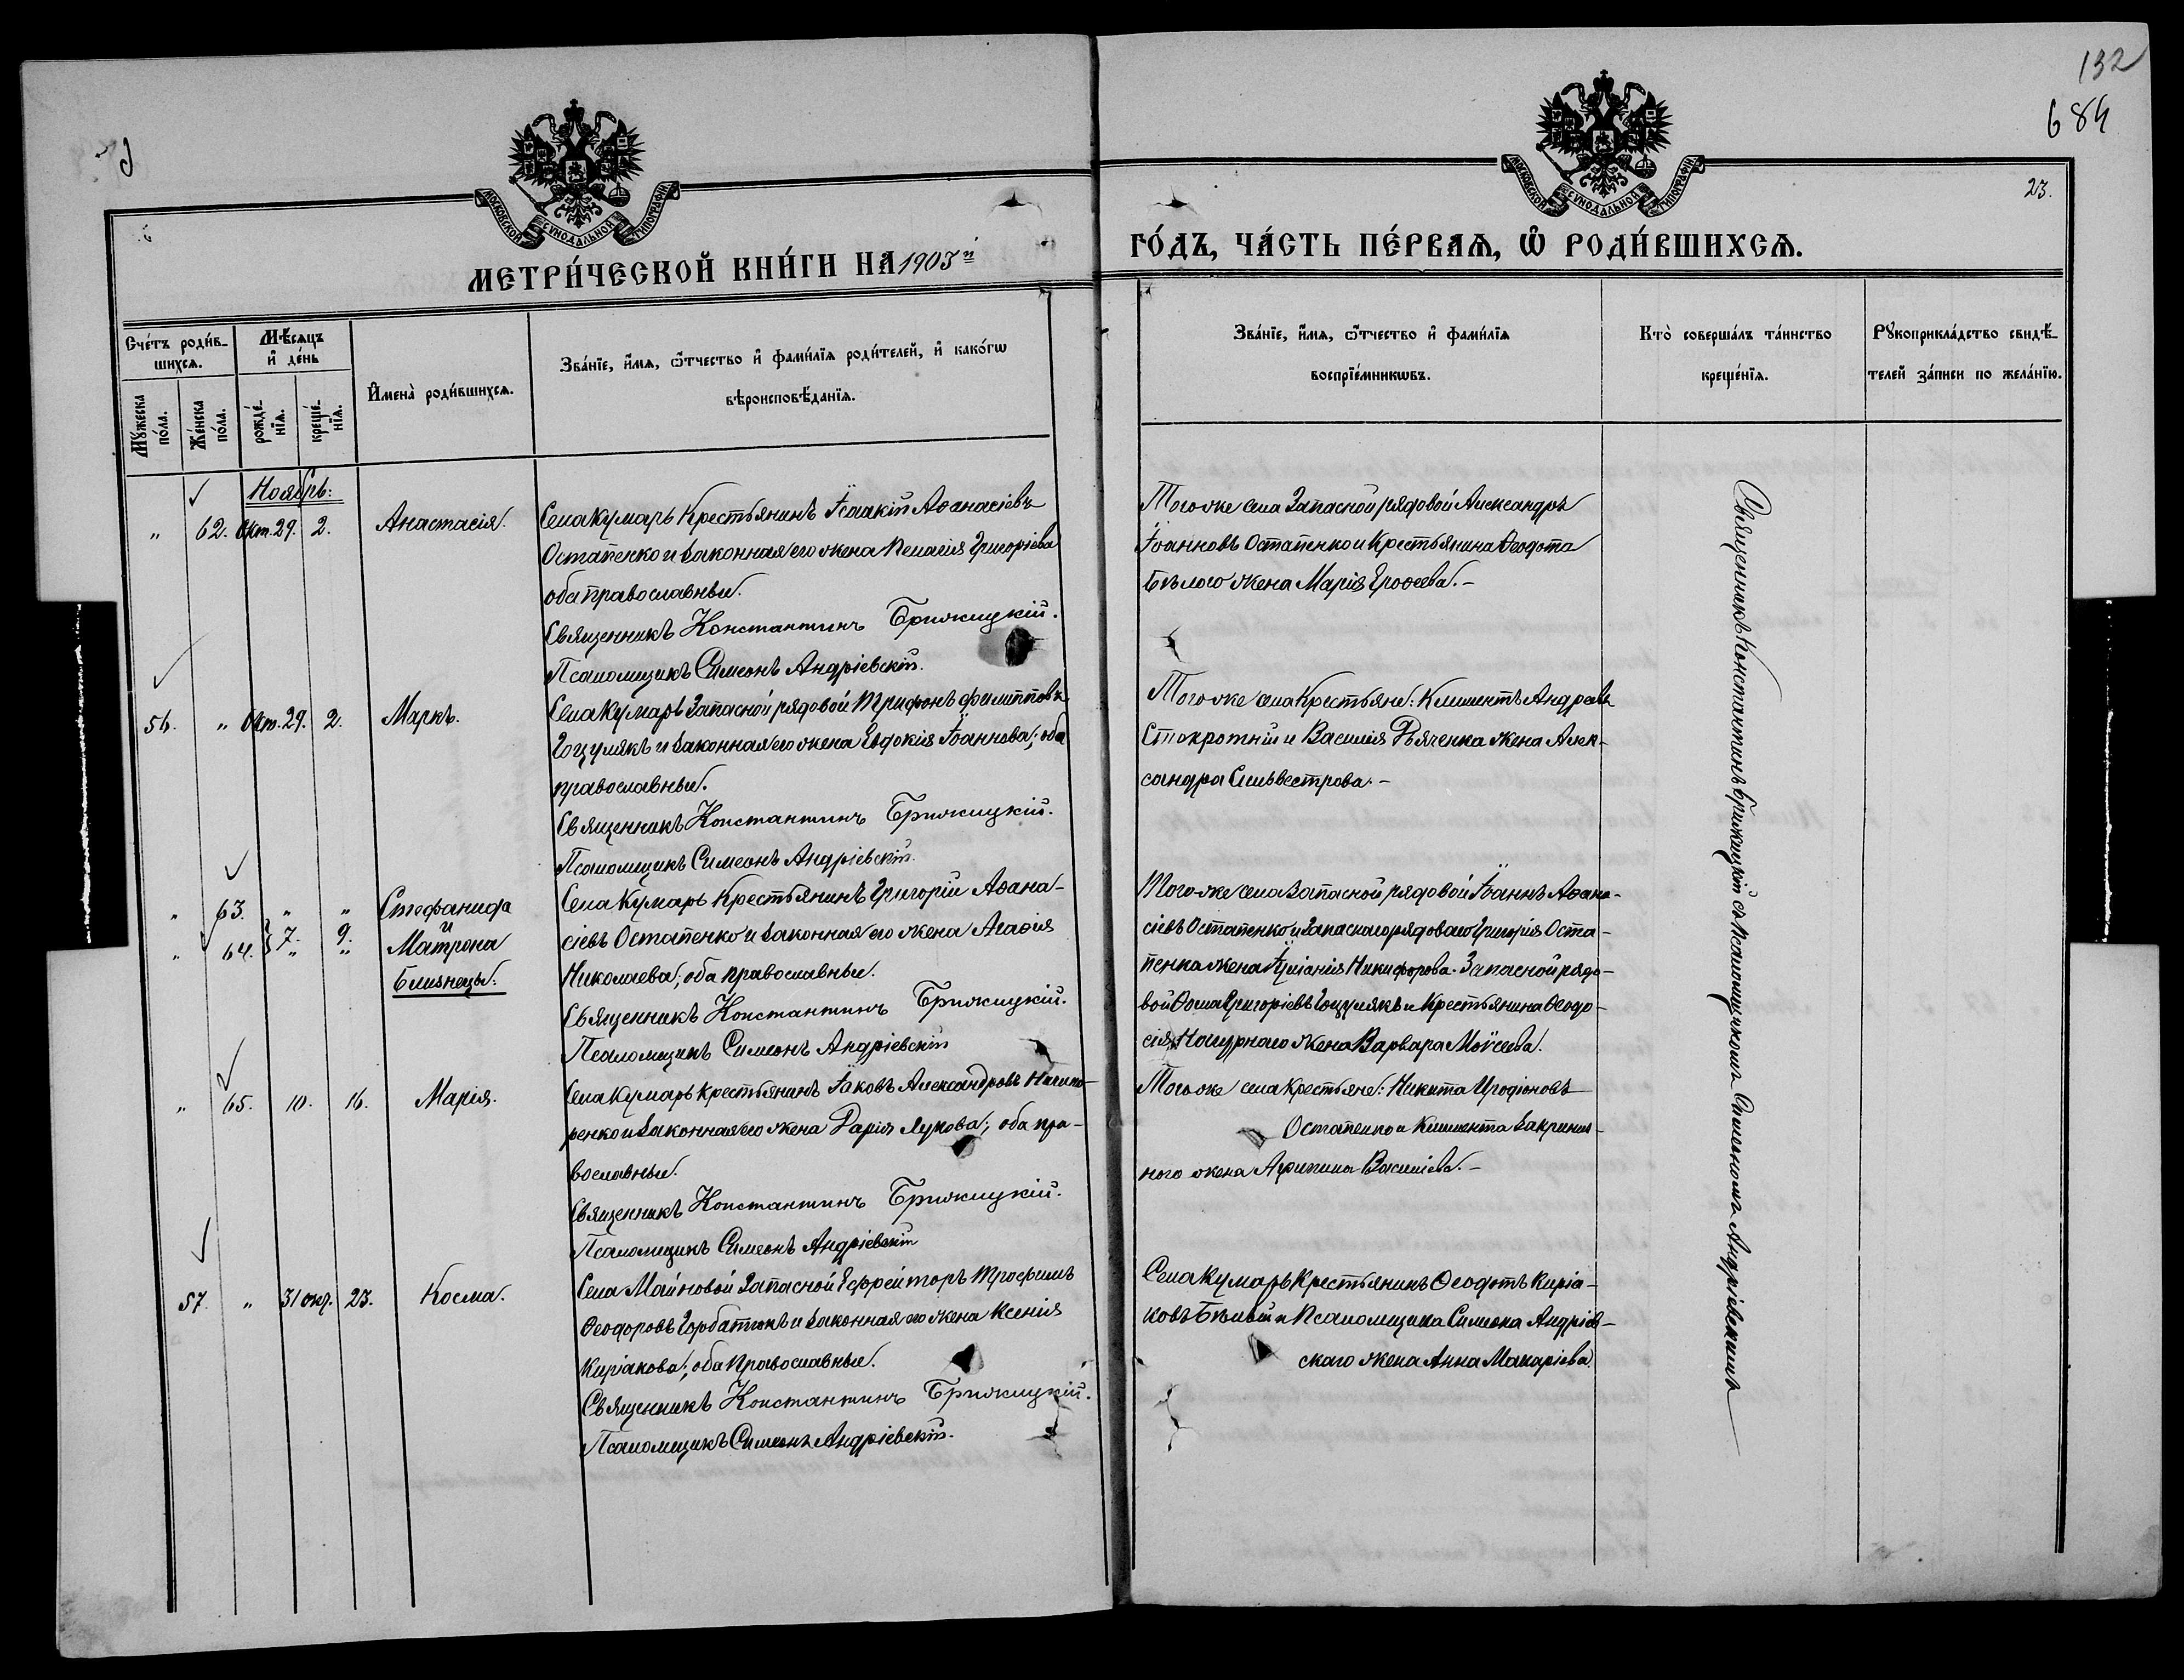 132
684
23.
МОСКОВСКОЙ СѴНОДАЛЬНОЙ ТИПОГРАФІИ
МОСКОВСКОЙ СѴНОДАЛЬНОЙ ТИПОГРАФІИ
МЕТРИ́ЧЕСКОЙ КНИ́ГИ НА 1903й
ГО́ДЪ, ЧА́СТЬ ПЕ́РВАѦ, Ѡ РОДИ́ВШИХСѦ.
Сче́тъ роди́в-
шихсѧ.
Мѣ́сѧцъ
и҆ де́нь
Мꙋ́жеска
по́ла.
Же́нска
по́ла.
рожде́-
нїѧ.
креще́-
нїѧ.
И҆мена̀ роди́вшихсѧ.
Зва́нїе, и҆́мѧ, ѻ҆́тчество и҆ фами́лїѧ роди́телей, и҆ како́гѡ
вѣроисповѣ́данїѧ.
Зва́нїе, и҆́мѧ, ѻ҆́тчество и҆ фами́лїѧ
воспрїе́мникѡвъ.
Кто̀ соверша́лъ та́инство
креще́нїѧ.
Рꙋкоприкла́дство свидѣ́-
телей за́писи по жела́нїю.
Ноябрь:
" 62. Окт. 29. 2. Анастасія.
Села Кумаръ Крестьянинъ Ісаакій Аѳанасіевъ
Остапенко и законная его жена Пелагія Григоріева
оба православные.
Священникъ Константинъ Брижицкій.
Псаломщикъ Симеонъ Андріевскій.
Того же села Запасной рядовой Александръ
Іоанновъ Остапенко и Крестьянина Ѳеодота
Бѣлого жена Марія Ероѳеева.-
56. " Окт. 29. 2. Маркъ.
Села Кумаръ Запасной рядовой Трифонъ Филипповъ
Гоцулякъ и законная его жена Евдокія Іоаннова; оба
православные.
Священникъ Константинъ Брижицкій.
Псаломщикъ Симеонъ Андріевскій.
Того же села Крестьяне: Климентъ Андреевъ
Стокротній и Василія Дьяченка жена Алек-
сандра Сильвестрова.-
" 63. " " Стефанида
и
" 64. } 7. 9. Матрона
Близнецы.
Села Кумаръ Крестьянинъ Григорій Аѳана-
сіевъ Остапенко и законная его жена Агаѳія
Николаева; оба православные.
Священникъ Константинъ Брижицкій.
Псаломщикъ Симеонъ Андріевскій
Того же села Запасной рядовой Іоаннъ Аѳана-
сіевъ Остапенко и Запасного рядоваго Григорія Оста-
пенка жена Іуліанія Никифорова. Запасной рядо-
вой Ѳома Григоріевъ Гоцулякъ и Крестьянина Ѳеодо-
сія жена Варвара Моѵсеева.
" 65. 10. 16. Марія.
Села Кумаръ крестьянинъ Іаковъ Александровъ Ничипо-
ренко и законная его жена Дарія Лукова; оба пра-
вославные.
Священникъ Константинъ Брижицкій.
Псаломщикъ Симеонъ Андріевскій
Того же села крестьяне: Никита Иродіоновъ
Остапенко и Климента Закринич-
ного жена Агрипина Василіева.-
57. " 31 окт. 23. Косма.
Села Майновой Запасной Ефрейторъ Трофимъ
Ѳеодоровъ Горбатюкъ и законная его жена Ксенія
Киріакова; оба Православные.
Священникъ Константинъ Брижицкій.
Псаломщикъ Симеонъ Андріевскій.
Села Кумаръ Крестьянинъ Ѳеодотъ Киріа-
ковъ Бѣлый и Псаломщика Симеона Андріев-
скаго жена Анна Макаріева.
Священникъ Константинъ Брижицкій съ Псаломщикомъ Симеономъ Андріевскимъ